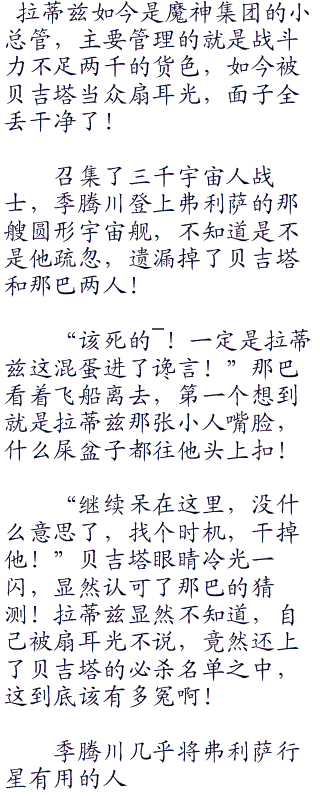 拉蒂兹如今是魔神集团的小
总管，主要管理的就是战斗
力不足两千的货色，如今被
贝吉塔当众扇耳光，面子全
丢干净了！
召集了三千宇宙人战
士，季腾川登上弗利萨的那
艘圆形宇宙舰，不知道是不
是他疏忽，遗漏掉了贝吉塔
和那巴两人！
“该死的¯！一定是拉蒂
兹这混蛋进了谗言！”那巴
看着飞船离去，第一个想到
就是拉蒂兹那张小人嘴脸，
什么屎盆子都往他头上扣！
“继续呆在这里，没什
么意思了，找个时机，干掉
他！”贝吉塔眼睛冷光一
闪，显然认可了那巴的猜
测！拉蒂兹显然不知道，自
己被扇耳光不说，竟然还上
了贝吉塔的必杀名单之中，
这到底该有多冤啊！
季腾川几乎将弗利萨行
星有用的人